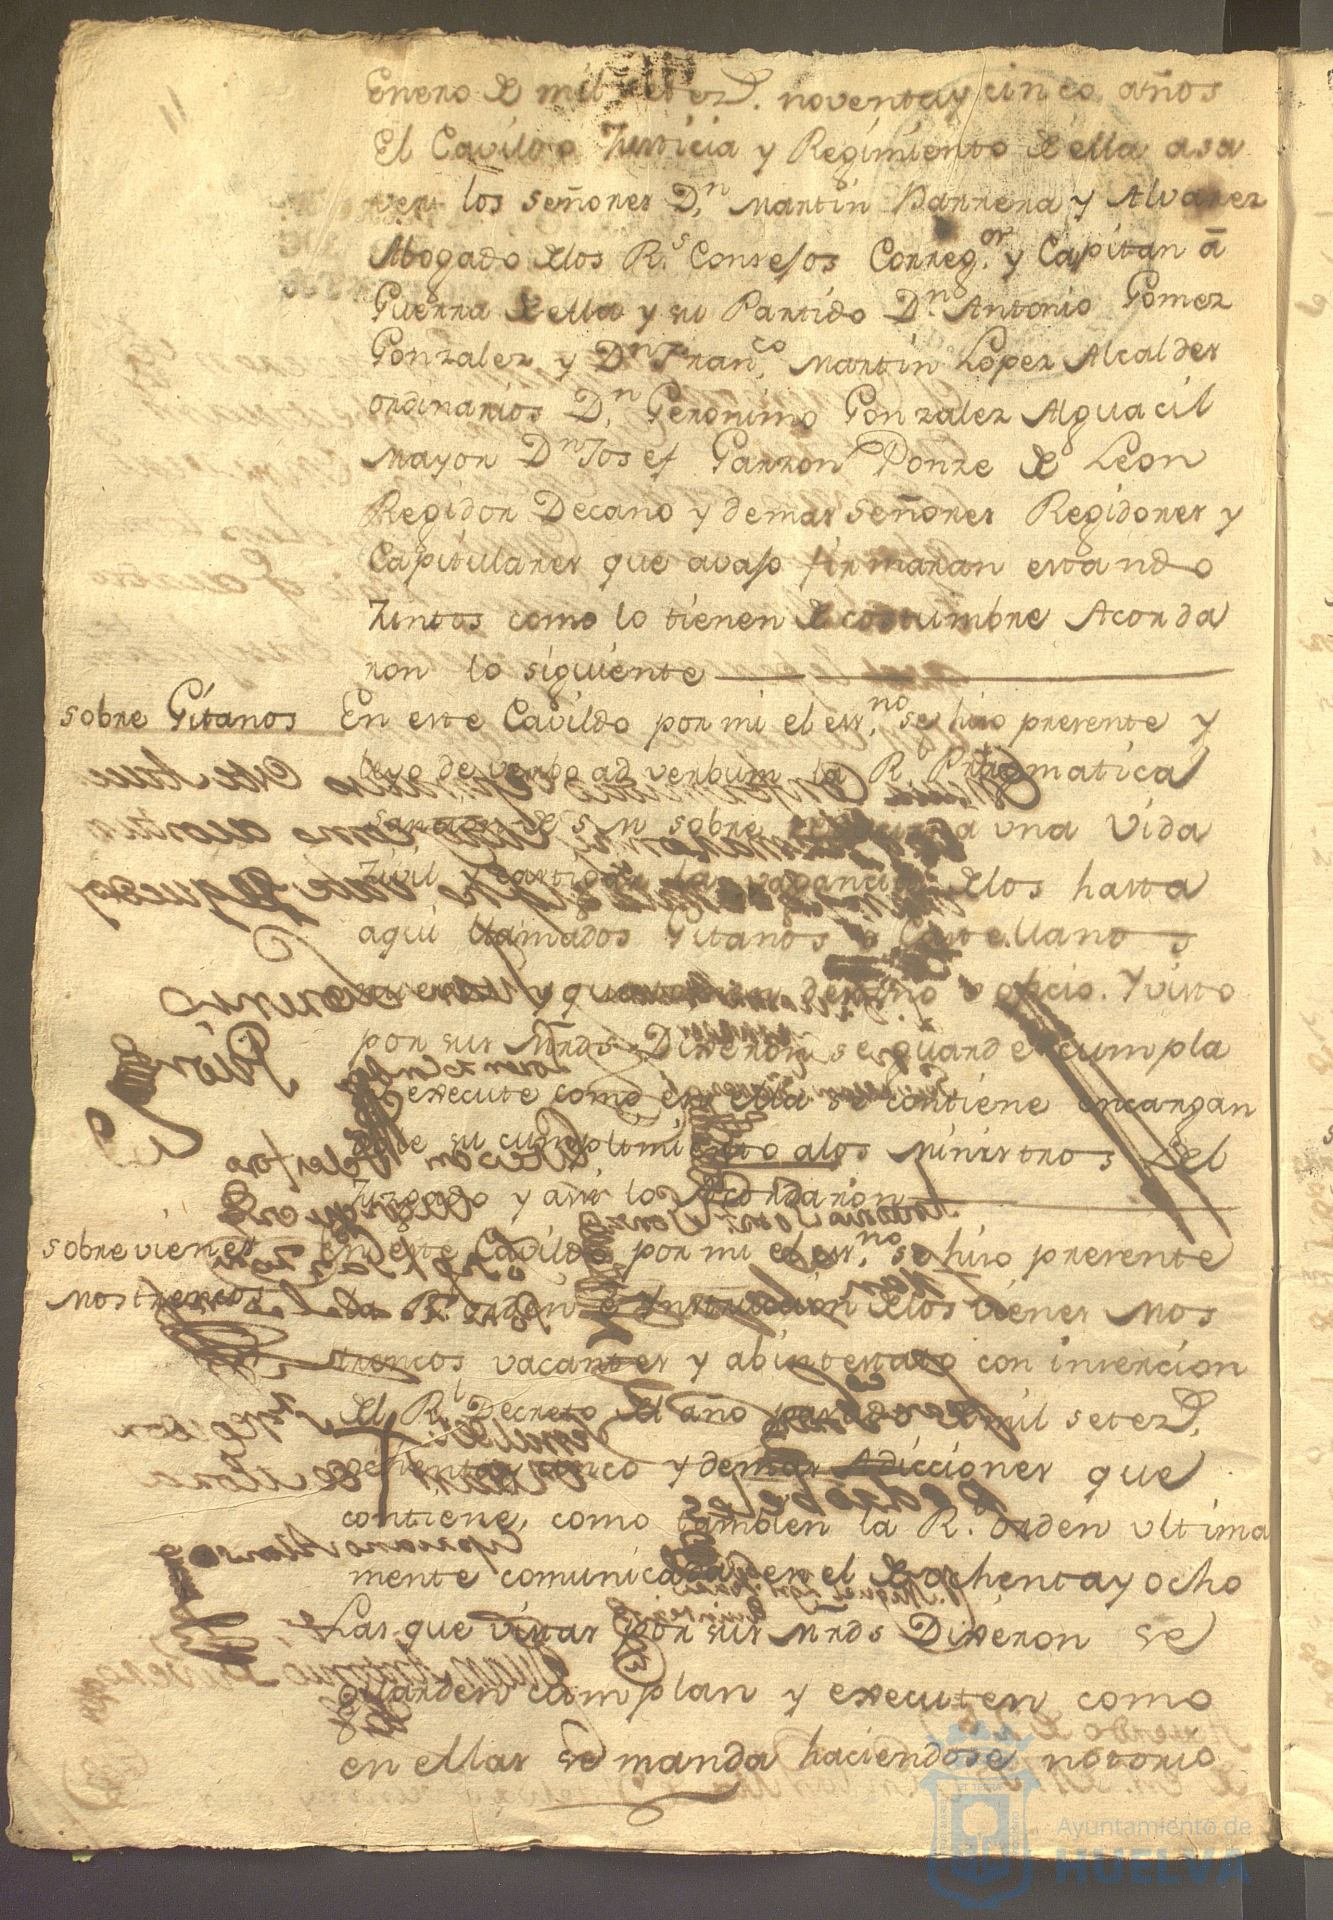 Enero de mil setez.s noventa y cinco años
El Cavildo Justicia y Regimiento de ella asa
ver: los señores D.n Martin Barrera y Alvarez
Abogado de los R.s Consejos Correg.or y Capitan ā
Guerra de ella y su Partido D.n Antonio Gomez
Gonzalez y D.n Fran.co Martin Lopez Alcaldes
ordinarios D.n Geronimo Gonzalez Alguacil
Mayor D.n Josef Garzon Ponze de Leon
Regidor Decano y demas señores Regidores y
Capitulares que avajo firmaran estando
Juntos como lo tienen de costumbre Acorda
ron lo siguiente
sobre Gitanos En este Cavildo por mi el ess.no se hizo presente y
leyo de verbo ad verbum la R.l Pragmatica
sancion de S M sobre una Vida
Zivil y castigar la vagancia de los hasta
aqui llamados Gitanos o Castellanos
nuevos y que destino o oficio. Y visto
por sus Mrds Dixeron se guarde cumpla
execute como en ella se contiene encargan
dose su cumplimiento a los Ministros del
Juzgado y assi lo Acordaron
sobre vienes En este Cavildo por mi el ess.no se hizo presente
Mostrencos la R.l orden e Instruccion de los vienes Mos
trencos vacantes y abintestato con insercion
del R.l Decreto del año pasado de mil setez.s
ochenta y cinco y demas Adicciones que
contiene, como tambien la R.l orden ultima
mente comunicada en el de ochenta y ocho
Las que vistas por sus Mrds Dixeron se
guarden cumplan y executen como
en ellas se manda haciendose notorio
Ayuntamiento de
HUELVA